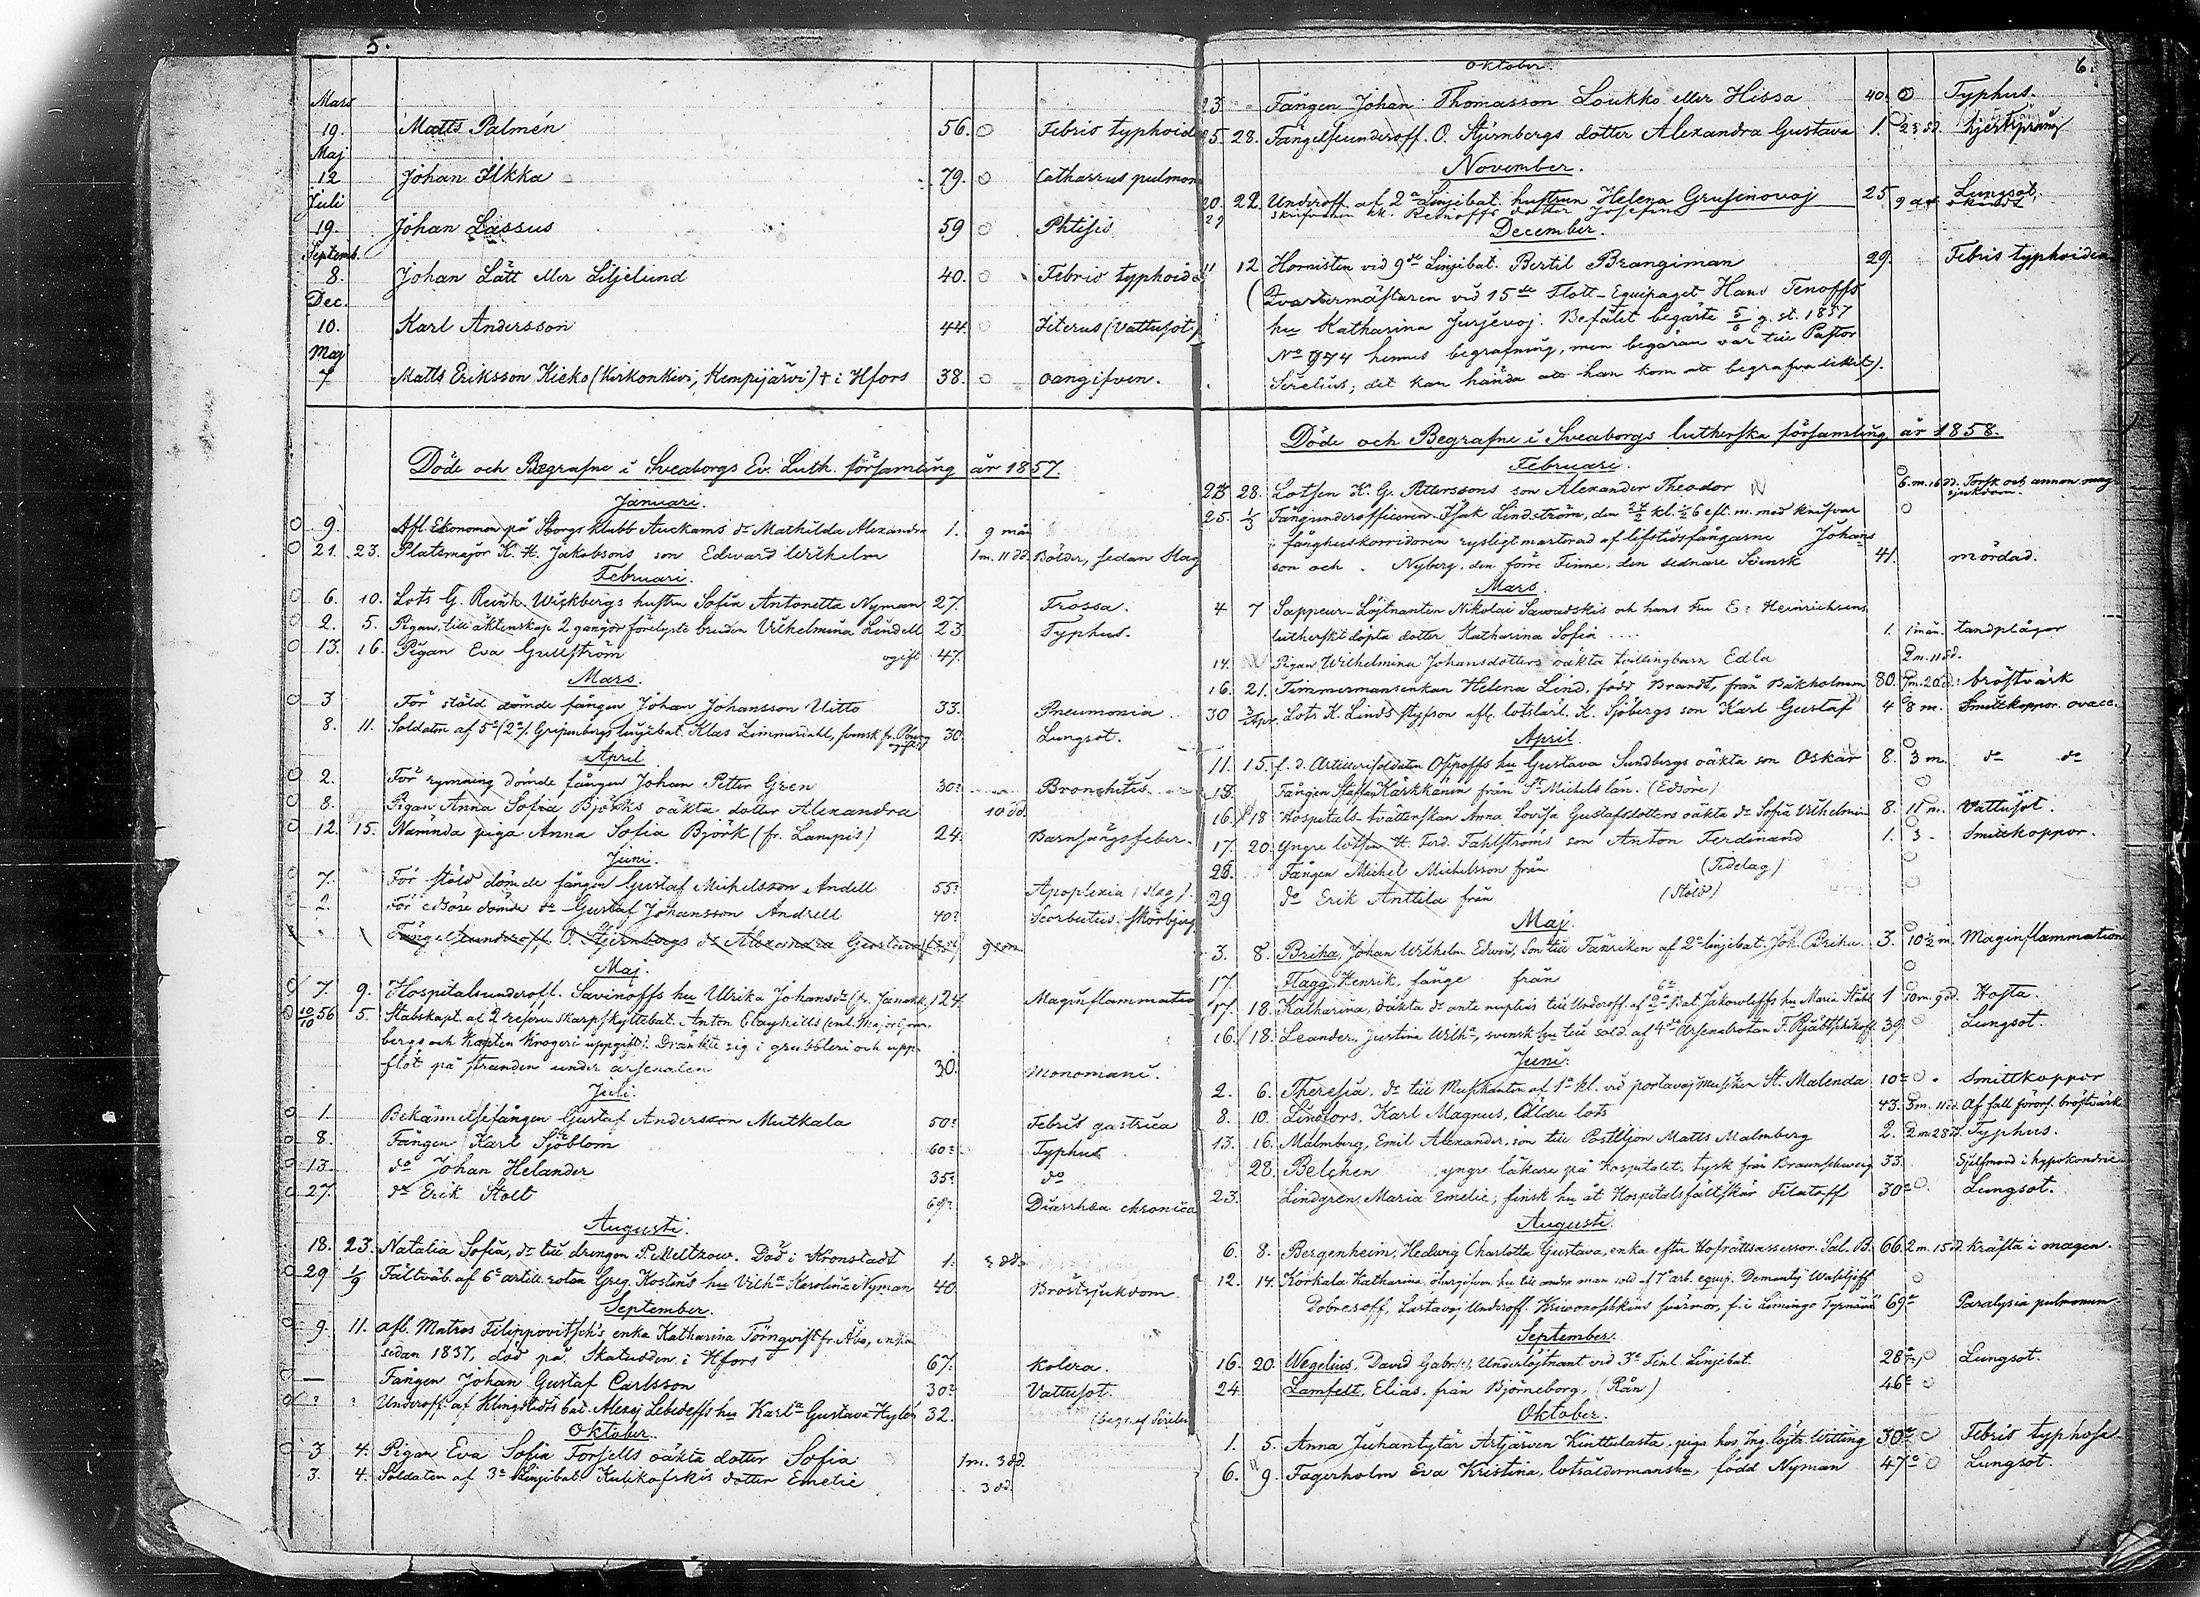 5.
Mars
19. Matts Palmén 56. Febris typhoid
Maj
12 Johan Ilkka 79. Catharrus pulmon
Juli
19. Johan Lassus 59 Phtisis
Septemb.
8. Johan Lätt eller Liljelund 40. Febris typhoid
Dec.
10. Karl Andersson 44. Icterus (Vattusot)
Maj
7 Matts Eriksson Kieko (Kirkonkivi, Kempijärvi) † i Hfors 38. oangifven.
Döde och Begrafne i Sveaborgs Ev. Luth. församling år 1857.
Januari.
9. Afl. Ekonomen på Sborgs klubb Auckams dr Mathilda Alexandra 1. 9 mån
21. 23. Platsmajor K. H. Jakobsons son Edward Wilhelm 1m. 11 dd. Bölder, sedan slag
Februari.
6. 10. Lots G. Reink. Wickbergs hustru Sofia Antonetta Nyman 27. Frossa.
2. 5. Pigan, till äktenskap 2 gånger förelyste bruden Vilhelmina Lindell 23. Typhus.
13. 16. Pigan Eva Gullström ogift 47.
Mars.
3 För stöld dömde fången Johan Johansson Uitto 33. Pneumonia
8. 11. Soldaten af 5e (2a). Gripenbergs linjebat. Klas Zimmerdahl, svensk fr. 30. Lungsot.
April
2. För rymning dömde fången Johan Petter Gren 30? Bronchitis.
8. Pigan Anna Sofia Björks oäkta dotter Alexandra 10 dd.
12. 15. Nämnda piga Anna Sofia Björk (fr. Lampis) 24. Barnsängsfeber.
Juni.
7. För stöld dömde fången Gustaf Michelsson Andell 55? Apoplexia (slag).
2. För edsöre dömde do Gustaf Johansson Andrell 40? Scorbutus: Skörbjugg
Fängelseunderoff. O. Stjernbergs dr Alexandra Gustava
Maj.
7. 9. Hospitalsunderoff. Savinoffs hu Ulrika Johansdr (fr. Janakk. 124. Maginflammatio
10/10 56 5. Stabskapt. af 2 reserv skarpskyttebat. Anton Clayhills (enl. Major Grön-
bergs och Kapten Krogers uppgift). Dränkte sig i grubbleri och upp-
flöt på stranden under arsenalen 30. Monomani.
Juli.
1. Bekännelsefången Gustaf Andersson Mutkala 50? Febris gastrica
8. Fången Karl Sjöblom 60? Typhus
13. do Johan Helander 35? do
27. do Erik Stolt 69? Diarrhœa chronica
Augusti.
18. 23. Natalia Sofia, dr till drengen P. Meltzow. Död i Kronstadt 1. 2 dd.
29 1/9 Fältväb. af 6e artill. roten Greg. Kostins hu Vilha Karolina Nyman 40. Bröstsjukdom
September.
9. 11. afl. Matros Filippovitsch's enka Katharina Törnqvist fr. Åbo, enka
sedan 1837, död på Skatudden i Hfors 67. Kolera.
— Fången Johan Gustaf Carlsson 30? Vattusot.
? ? Underoff. af Klingstedts bat. Alexej Lebedeffs hu Karla Gustava Hylén 32. (begr. af Sirelius
Oktober.
3 4. Pigan Eva Sofia Forsells oäkta dotter Sofia 1m. 3 dd.
3. 4. Soldaten af 3e Linjebat. Kulikofskis dotter Emelie 3 dd.
6.
Oktober.
23. Fången Johan Thomasson Loukko eller Hissa 40. Typhus.
25. 28. Fängelseunderoff. O. Stjernbergs dotter Alexandra Gustava 1. 23 dd.
November.
20. 22. Underoff. af 2a Linjebat. hustrun Helena Grusinovoj 25 Lungsot.
29 Reinoffs dotter Josefina 9
December.
11 12 Hornisten vid 9de Linjebat. Bertil Brangiman 29. Febris typhoidea
(Qvartermästaren vid 15de Flott-Equipaget Hans Tenoffs
hu Katharina Jurjevoj. Befälet begärte 5/6 g. st. 1857
No 974 hennes begrafning, men begäran var till Pastor
Sirelius; det kan hända att han kom att begrafva liket).
Döde och Begrafne i Sveaborgs lutherska församling år 1858.
Februari.
23 28. Lotsen K. G. Petterssons son Alexander Theodor 6.m. 16 dd. Torsk och annan mag-
sjukdom.
25. 1/3 Fångunderofficeren Isak Lindström, den 25/2 kl. 1/2 6 eft. m. med knifvar
i fånghuskorridoren rysligt martorad af lifstidsfångarne Johans-
son och Nyberg, den förre Finne, den sednare Svensk 41. mördad.
Mars.
4 7 Sappeur-Löjtnanten Nikolai Sawadskis och hans Fru E: Heinrichsens
lutherskt döpta dotter Katharina Sofia .... 1. 1 mån. tandplågor
14. Pigan Wilhelmina Johansdotters oäkta tvillingbarn Edla 2 m. 11 dd.
16. 21. Timmermansenkan Helena Lind, född Brandt, från Bakholmen 80. 7m. 20 dd. bröstvärk
30 3/Apr. Lots K. Linds styfson afl. lotslärl. K. Sjöbergs son Karl Gustaf 4 8 m. Smittkoppor. ovacc.
April.
11. 15. f. d. Artillerisoldaten Ossipoffs hu Gustava Sundbergs oäkta son Oskar 8. 3 m. do do
13. Fången Staffan Kärkkänen från St. Michels län. (Edsöre)
16. 18 Hospitals-tvätterskan Anna Lovisa Gustafsdotters oäkta dr Sofia Vilhelmin 8. 11 m. Vattusot.
17. 20. Yngre lotsen H. Ferd. Fahlströms son Anton Ferdinand 1. 3 Smittkoppor.
23. Fången Michel Michelsson från (Tidelag)
29 do Erik Anttila från (Stöld)
Maj.
3. 8. Briha, Johan Wilhelm Edvin, son till Fänriken af 2a linjebat. Joh. Briha. 3. 10 1/2 m. Maginflammation
17. Flagg, Henrik, fånge från
17. 18. Katharina, oäkta dr ante nuptias till Underoff. af 2a Bat. Jakowleffs hu Maria Ståhl 1 10m. 9 dd. Hosta.
16. 18. Leander, Justina Wilha, svensk hu till sold. af 4de Arsenalrotan F. Rjabtschikoff 39. Lungsot.
Juni.
2. 6. Theresia, dr till Musikanten af 1a kl. vid portavoj musiken St. Malenda 10 Smittkoppor
8. 10. Lindfors, Karl Magnus, äldre lots 43. 3m. 11 d. Af fall förors. bröstvärk
13. 16. Malmberg, Emil Alexander, son till Postiljon Matts Malmberg 2. 2 m. 28 d. Typhus.
28. Belchen yngre läkare på Hospitalet, tysk från Braunschweig 33. Sjelfmord i hypokondrie
23. Lindgren, Maria Emelie, finsk hu åt Hospitalsfältskär Filatoff 30 Lungsot.
Augusti.
6. 8. Bergenheim, Hedvig Charlotta Gustava, enka efter Hofrättsassessor. Sal. B. 66. 2 m. 15 d. kräfta i magen.
12. 14. Korkala Katharina, hu till andra man sold. af 7e arb. equip. Dementij Wasiljeff
Dobnesoff, Underoff. Kriwonoschkins svärmor, f. i Limingo Tyrnävä 69 Paralysia pulmonum.
September.
16. 20. Wegelius, David Gabr., Underlöjtnant vid 3e Finl. Linjebat. 28 Lungsot.
24 Lamfelt, Elias, från Björneborg, (Rån) 46
Oktober.
1. 5. Anna Juhantytär Artjärven Kinttulasta, piga hos Ing. löjtn. Witting 30 Febris typhosa
6. 9. Fagerholm Eva Kristina, lotsåldermanska, född Nyman 47 Lungsot